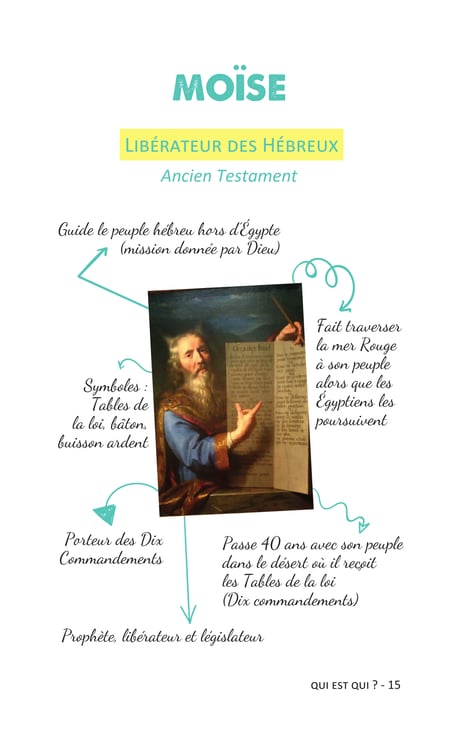 MOÏSE
LIBÉRATEUR DES HÉBREUX
Ancien Testament
Guide le peuple hébreu hors d'Égypte
(mission donnée par Dieu)
Fait traverser
la mer Rouge
à son peuple
alors que les
Égyptiens les
poursuivent
Symboles :
Tables de
la loi, bâton,
buisson ardent
Porteur des Dix
Commandements
Passe 40 ans avec son peuple
dans le désert où il reçoit
les Tables de la loi
(Dix commandements)
Prophète, libérateur et législateur
QUI EST QUI ? - 15